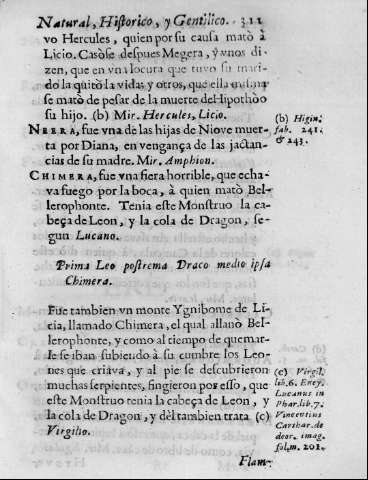 Natural, Historico, y Gentilico. 311
vo Hercules, quien por su causa matò à
Licio. Casòse despues Megera, y vnos di-
zen, que en vna locura que tuvo su mari-
do la quitò la vida y otros, que ella misma
se matò de pesar de la muerte del Hipothòo
su hijo. (b) Mir. Hercules, Licio.
NEERA, fue vna de las hijas de Niove muer-
ta por Diana, en vengança de las jactan-
cias de su madre. Mir. Amphion.
(b) Higin.
fab. 241.
& 243.
CHIMERA, fue vna fiera horrible, que echa-
va fuego por la boca, à quien matò Bel-
lerophonte. Tenia este Monstruo la ca-
beça de Leon, y la cola de Dragon, se-
gun Lucano.
Prima Leo postrema Draco medio ipsa
Chimera.
Fue tambien vn monte Ygnibome de Li-
cia, llamado Chimera, el qual allanò Bel-
lerophonte, y como al tiempo de quemar-
le se iban subiendo à su cumbre los Leo-
nes que criava, y al pie se descubrieron
muchas serpientes, fingieron por esso, que
este Monstruo tenia la cabeça de Leon, y
la cola de Dragon, y dèl tambien trata (c)
Virgilio.
(c) Virgil.
lib. 6. Eney.
Lucanus in
Phar. lib. 7.
Vincentius
Carthar. de
deor. imag.
fol. m. 201.
Flam-